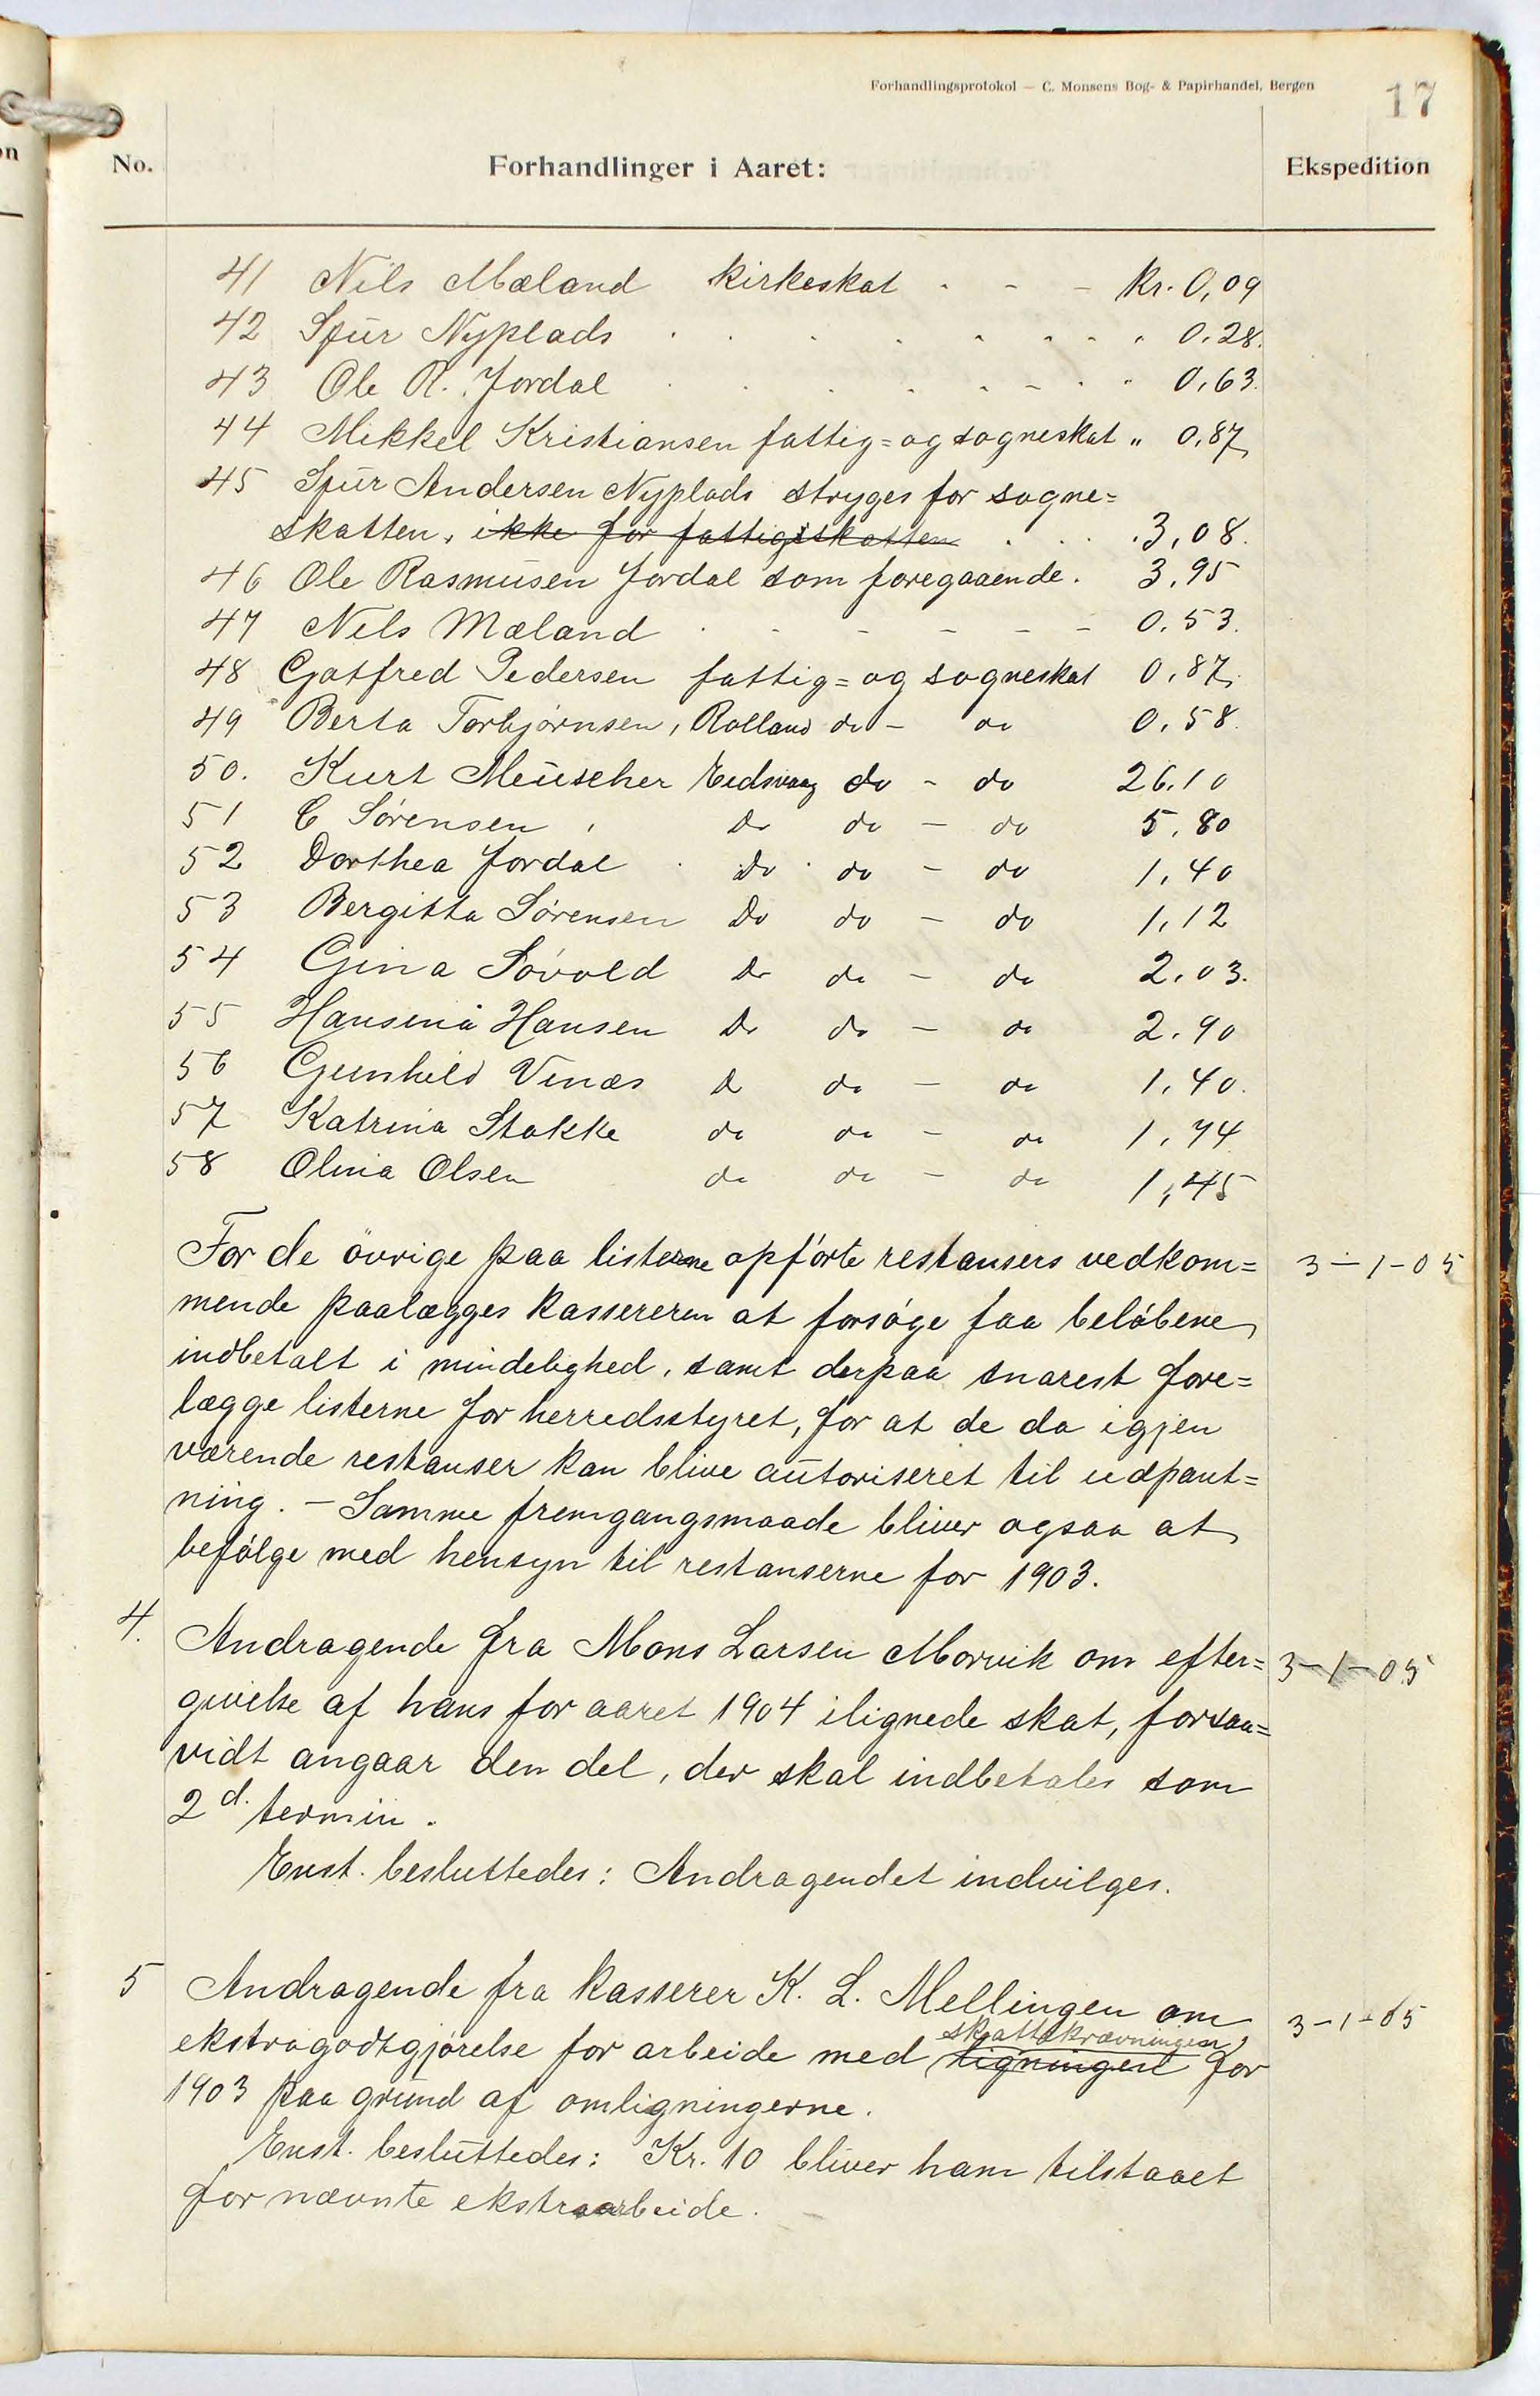 Forhandlingsprotokol — C. Monsens Bog- & Papirhandel, Bergen
17
No. Forhandlinger i Aaret: Ekspedition
41 Nils Mæland kirkeskat . - - Kr. 0,09
42 Sjur Nyplads . . . . . . . " 0.28.
43 Ole R. Jordal . . . . . - . " 0,63.
44 Mikkel Kristiansen fattig= og sogneskat " 0,87,
45 Sjur Andersen Nyplads stryges for sogne=
skatten, ikke for fattigskatten . . . 3,08.
46 Ole Rasmusen Jordal som foregaaende. 3,95
47 Nils Mæland . - - - - - 0.53.
48 Gotfred Pedersen fattig= og sogneskat 0,87.
49 Berta Torbjørnsen, Rolland do - do 0,58.
50. Kurt Meuscher Eidsvaag do - do 26.10
51 C Sørensen , do do - do 5.80
52 Dorthea Jordal . do do - do 1,40
53 Bergitta Sørensen Do do - do 1,12
54 Gina Søvold do do - do 2.03.
55 Hansina Hansen do do - do 2.90
56 Gunhild Vinæs do do - do 1,40.
57 Katrina Stokke do do - do 1,74
58 Olina Olsen do do - do 1,45
For de øvrige paa listerne opførte restansers vedkom= 3-1-05
mende paalægges kassereren at forsøge faa beløbene
indbetalt i mindelighed, samt derpaa snarest fore=
lægge listerne for herredsstyret, for at de da igjen
værende restanser kan blive autoriseret til udpant=
ning. — Samme fremgangsmaade bliver ogsaa at
befølge med hensyn til restanserne for 1903.
4. Andragende fra Mons Larsen Morvik om efter= 3-1-05
givelse af hans for aaret 1904 ilignede skat, forsaa=
vidt angaar den del, der skal indbetales som
2d. termin.
Enst. besluttedes: Andragendet indvilges.
5 Andragende fra kasserer K. L. Mellingen om 3-1-05
skatteskrævningen
ekstragodtgjørelse for arbeide med ligningen for
1903 paa grund af omligningerne.
Enst. besluttedes: Kr. 10 bliver ham tilstaaet
for nævnte ekstraarbeide.